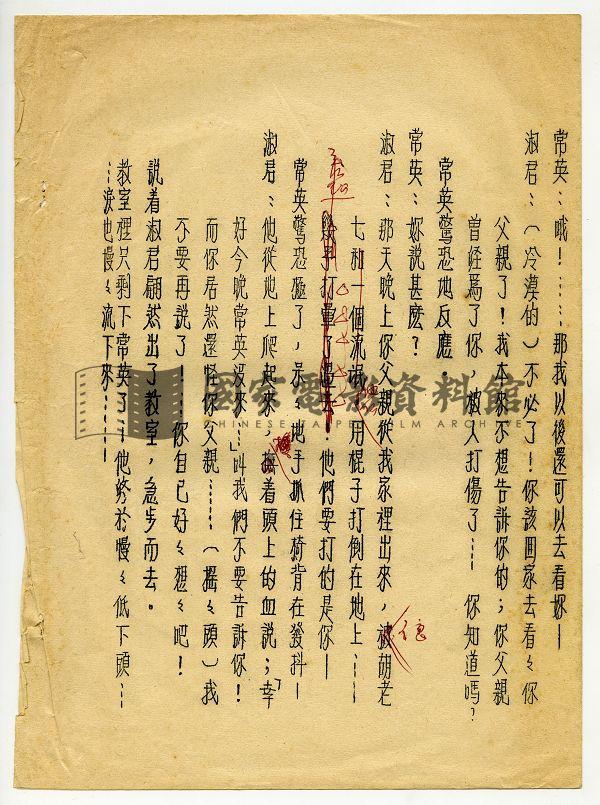 常英：哦！……那我以後還可以去看妳—
淑君：（冷漠的）不必了！你該回家去看々你
父親了！我本來不想告訴你的；你父親
曾經為了你，被人打傷了……你知道嗎？
常英驚恐地反應。
常英：妳說甚麼？
淑君：那天晚上你父親從我家裡出來，被胡老
七和一個流氓 用棍子打倒在地上……
幾乎打暈了過去！他們要打的是你—
常英驚恐極了，呆々地手抓住椅背在發抖—
淑君：他從地上爬起來，撫着頭上的血說；「幸
好今晚常英沒來…」叫我們不要告訴你！
而你居然還怪你父親……（搖々頭）我
不要再說了！……你自己好々想々吧！
說着淑君翩然出了教室，急步而去。
教室裡只剩下常英了…他終於慢々低下頭……
…淚也慢々流下來………
國家電影資料館
CHINESE TAIPEI FILM ARCHIVE